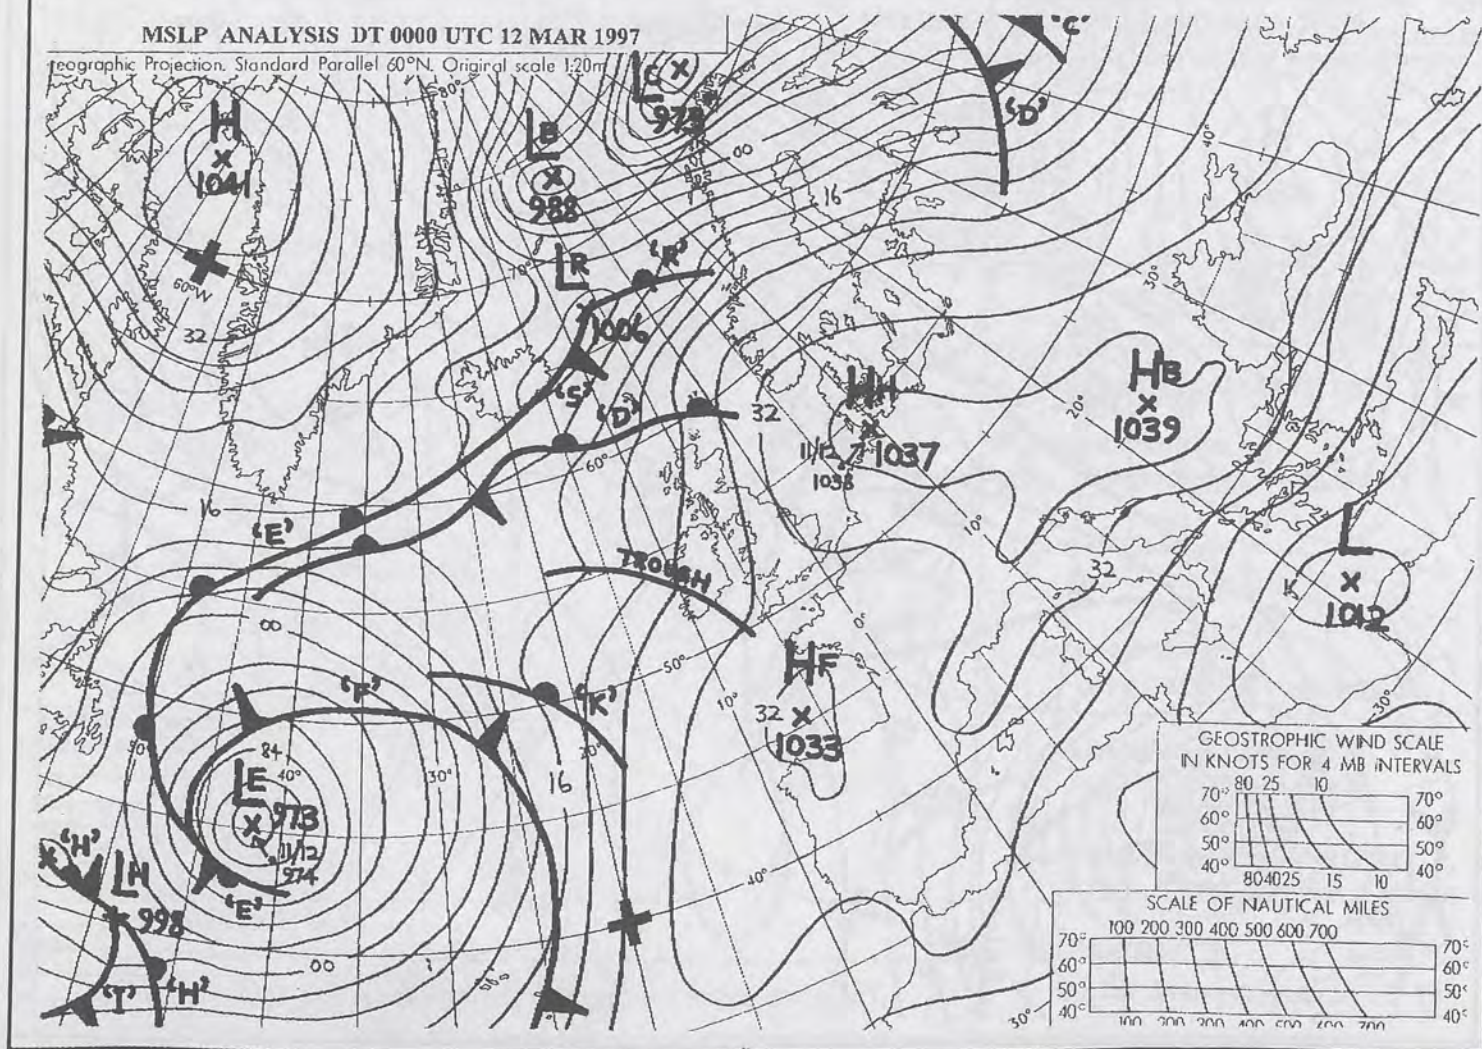 MSLP ANALYSIS DT 0000 UTC 12 MAR 1997
eographic Projection. Standard Parallel 60°N. Original scale 1:20m
80°
'C'
L C
975
'D'
H
1041
L B
988
00
40°
16
60°W
70°
L R
'R'
30°
32
1006
'S'
'D'
32
H H
11/12
1037
1038
H B
1039
20°
60°
16
'E'
10°
TROUGH
32
L
K
1012
00
0°
50°
10°
H F
32
1033
30°
'F'
'K'
20°
84
40°
30°
50°
16
L E
973
11/12
974
'H'
L H
998
'E'
40°
00
'I'
'H'
30°
GEOSTROPHIC WIND SCALE
IN KNOTS FOR 4 MB INTERVALS
80 25 10
70° 70°
60° 60°
50° 50°
40° 40°
80 40 25 15 10
SCALE OF NAUTICAL MILES
100 200 300 400 500 600 700
70° 70°
60° 60°
50° 50°
40° 40°
100 200 300 400 500 600 700